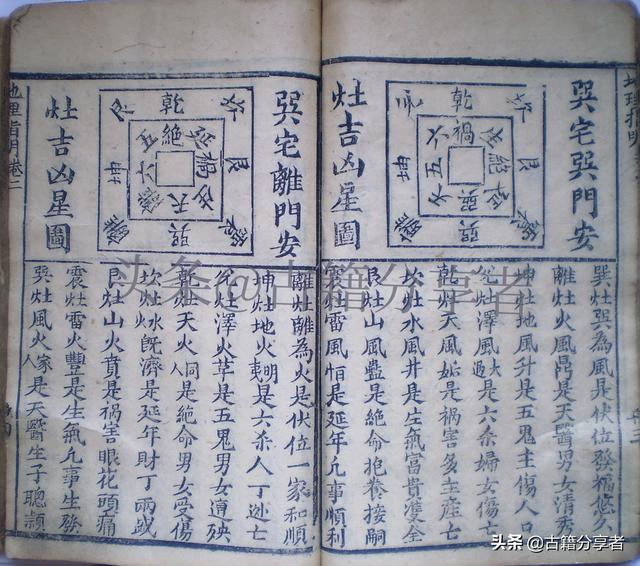 巽宅巽門安
灶吉凶星圖
乾
艮
巽
禍
六
五
絕
巽灶巽為風是伏位發福悠久
離灶火風鼎是天醫男女清秀
坤灶地風升是五鬼主傷人口
兌灶澤風大過是六杀婦女傷亡
乾灶天風姤是禍害多主產亡
坎灶水風井是生氣富貴雙全
艮灶山風蠱是絕命抱養接嗣
震灶雷風恒是延年凢事順利
巽宅離門安
灶吉凶星圖
乾
艮
巽
絕
禍
五
六
天
離灶離為火是伏位一家和順
坤灶地火明夷是六杀人丁亡
兌灶澤火革是五鬼男女遭殃
乾灶天火同人是絕命男女受傷
坎灶水火既濟是延年財丁兩盛
艮灶山火賁是禍害眼花頭痛
震灶雷火豐是生氣凢事生發
巽灶風火家人是天醫生子聰穎
地理指明卷二
头条@古籍分享者
头条 @古籍分享者